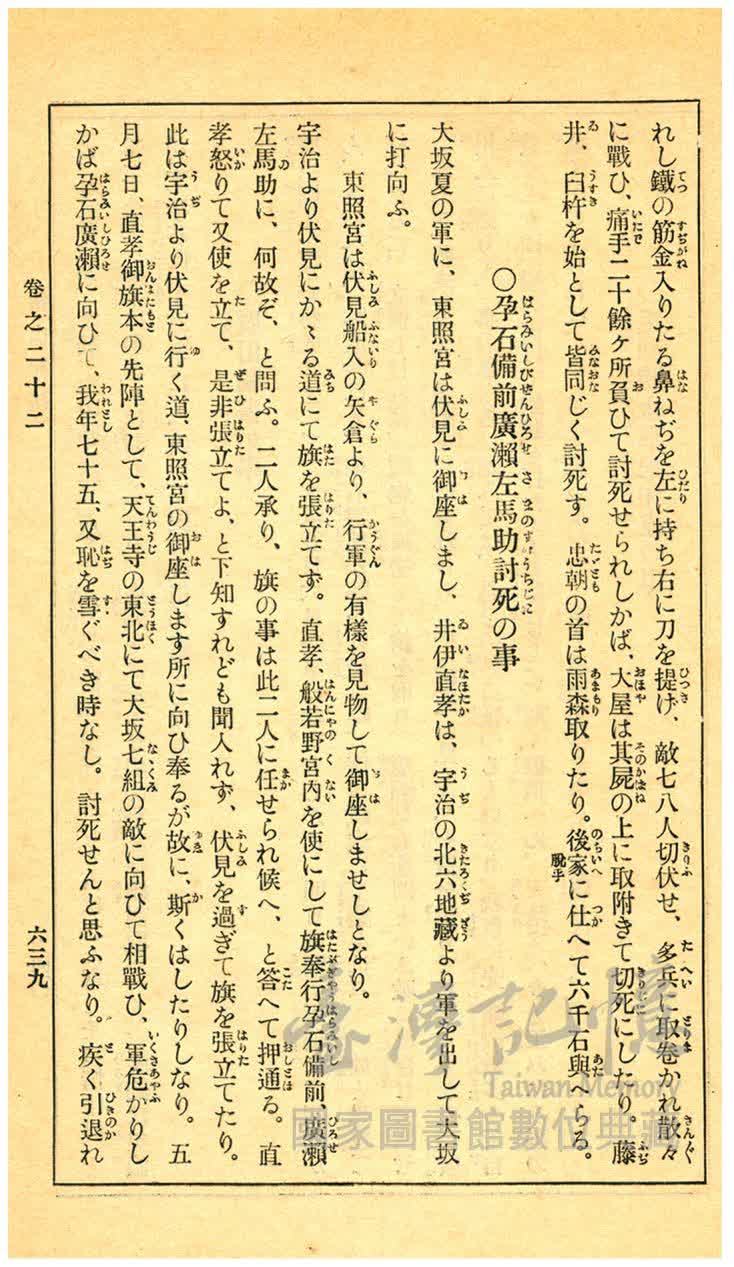 れし鐵の筋金入りたる鼻ねぢを左に持ち右に刀を提げ、敵七八人切伏せ、多兵に取卷かれ散々
に戰ひ、痛手二十餘ヶ所負ひて討死せられしかば、大屋は其屍の上に取附きて切死にしたり。藤
井、臼杵を始として皆同じく討死す。忠朝の首は雨森取りたり。後家に仕へて六千石與へらる。
脫乎
〇孕石備前廣瀨左馬助討死の事
大坂夏の軍に、東照宮は伏見に御座しまし、井伊直孝は、宇治の北六地藏より軍を出して大坂
に打向ふ。
東照宮は伏見船入の矢倉より、行軍の有樣を見物して御座しませしとなり。
宇治より伏見にかゝる道にて旗を張立てず。直孝、般若野宮內を使にして旗奉行孕石備前、廣瀨
左馬助に、何故ぞ、と問ふ。二人承り、旗の事は此二人に任せられ候へ、と答へて押通る。直
孝怒りて又使を立て、是非張立てよ、と下知すれども聞入れず、伏見を過ぎて旗を張立てたり。
此は宇治より伏見に行く道、東照宮の御座します所に向ひ奉るが故に、斯くはしたりしなり。五
月七日、直孝御旗本の先陣として、天王寺の東北にて大坂七組の敵に向ひて相戰ひ、軍危かりし
かば孕石廣瀨に向ひて、我年七十五、又恥を雪ぐべき時なし。討死せんと思ふなり。疾く引退れ
卷之二十二
六三九
臺灣記憶
Taiwan Memory
國家圖書館數位典藏